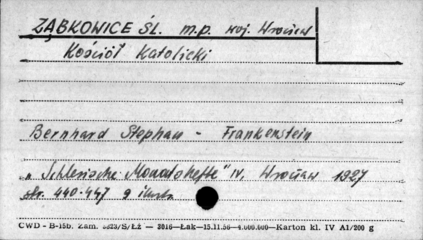 ZĄBKOWICE ŚL. m.p. woj. Wrocław
Kościół Katolicki
Bernhard Stephan - Frankenstein
"Schlesische Monatshefte" IV, Wrocław 1927
str. 440-447 9 ilustr.
CWD - B-15b. Zam. 5323/S/LŻ — 3016—Łak—15.11.56—4.000.000—Karton kl. IV A1/200 g